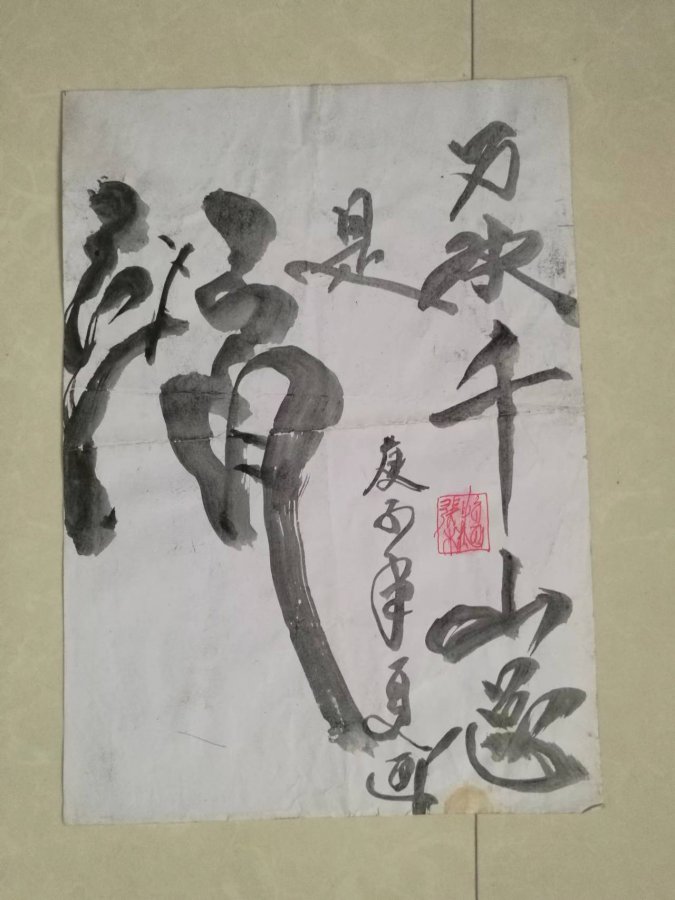 万水千山总
是
情
庚子年夏画